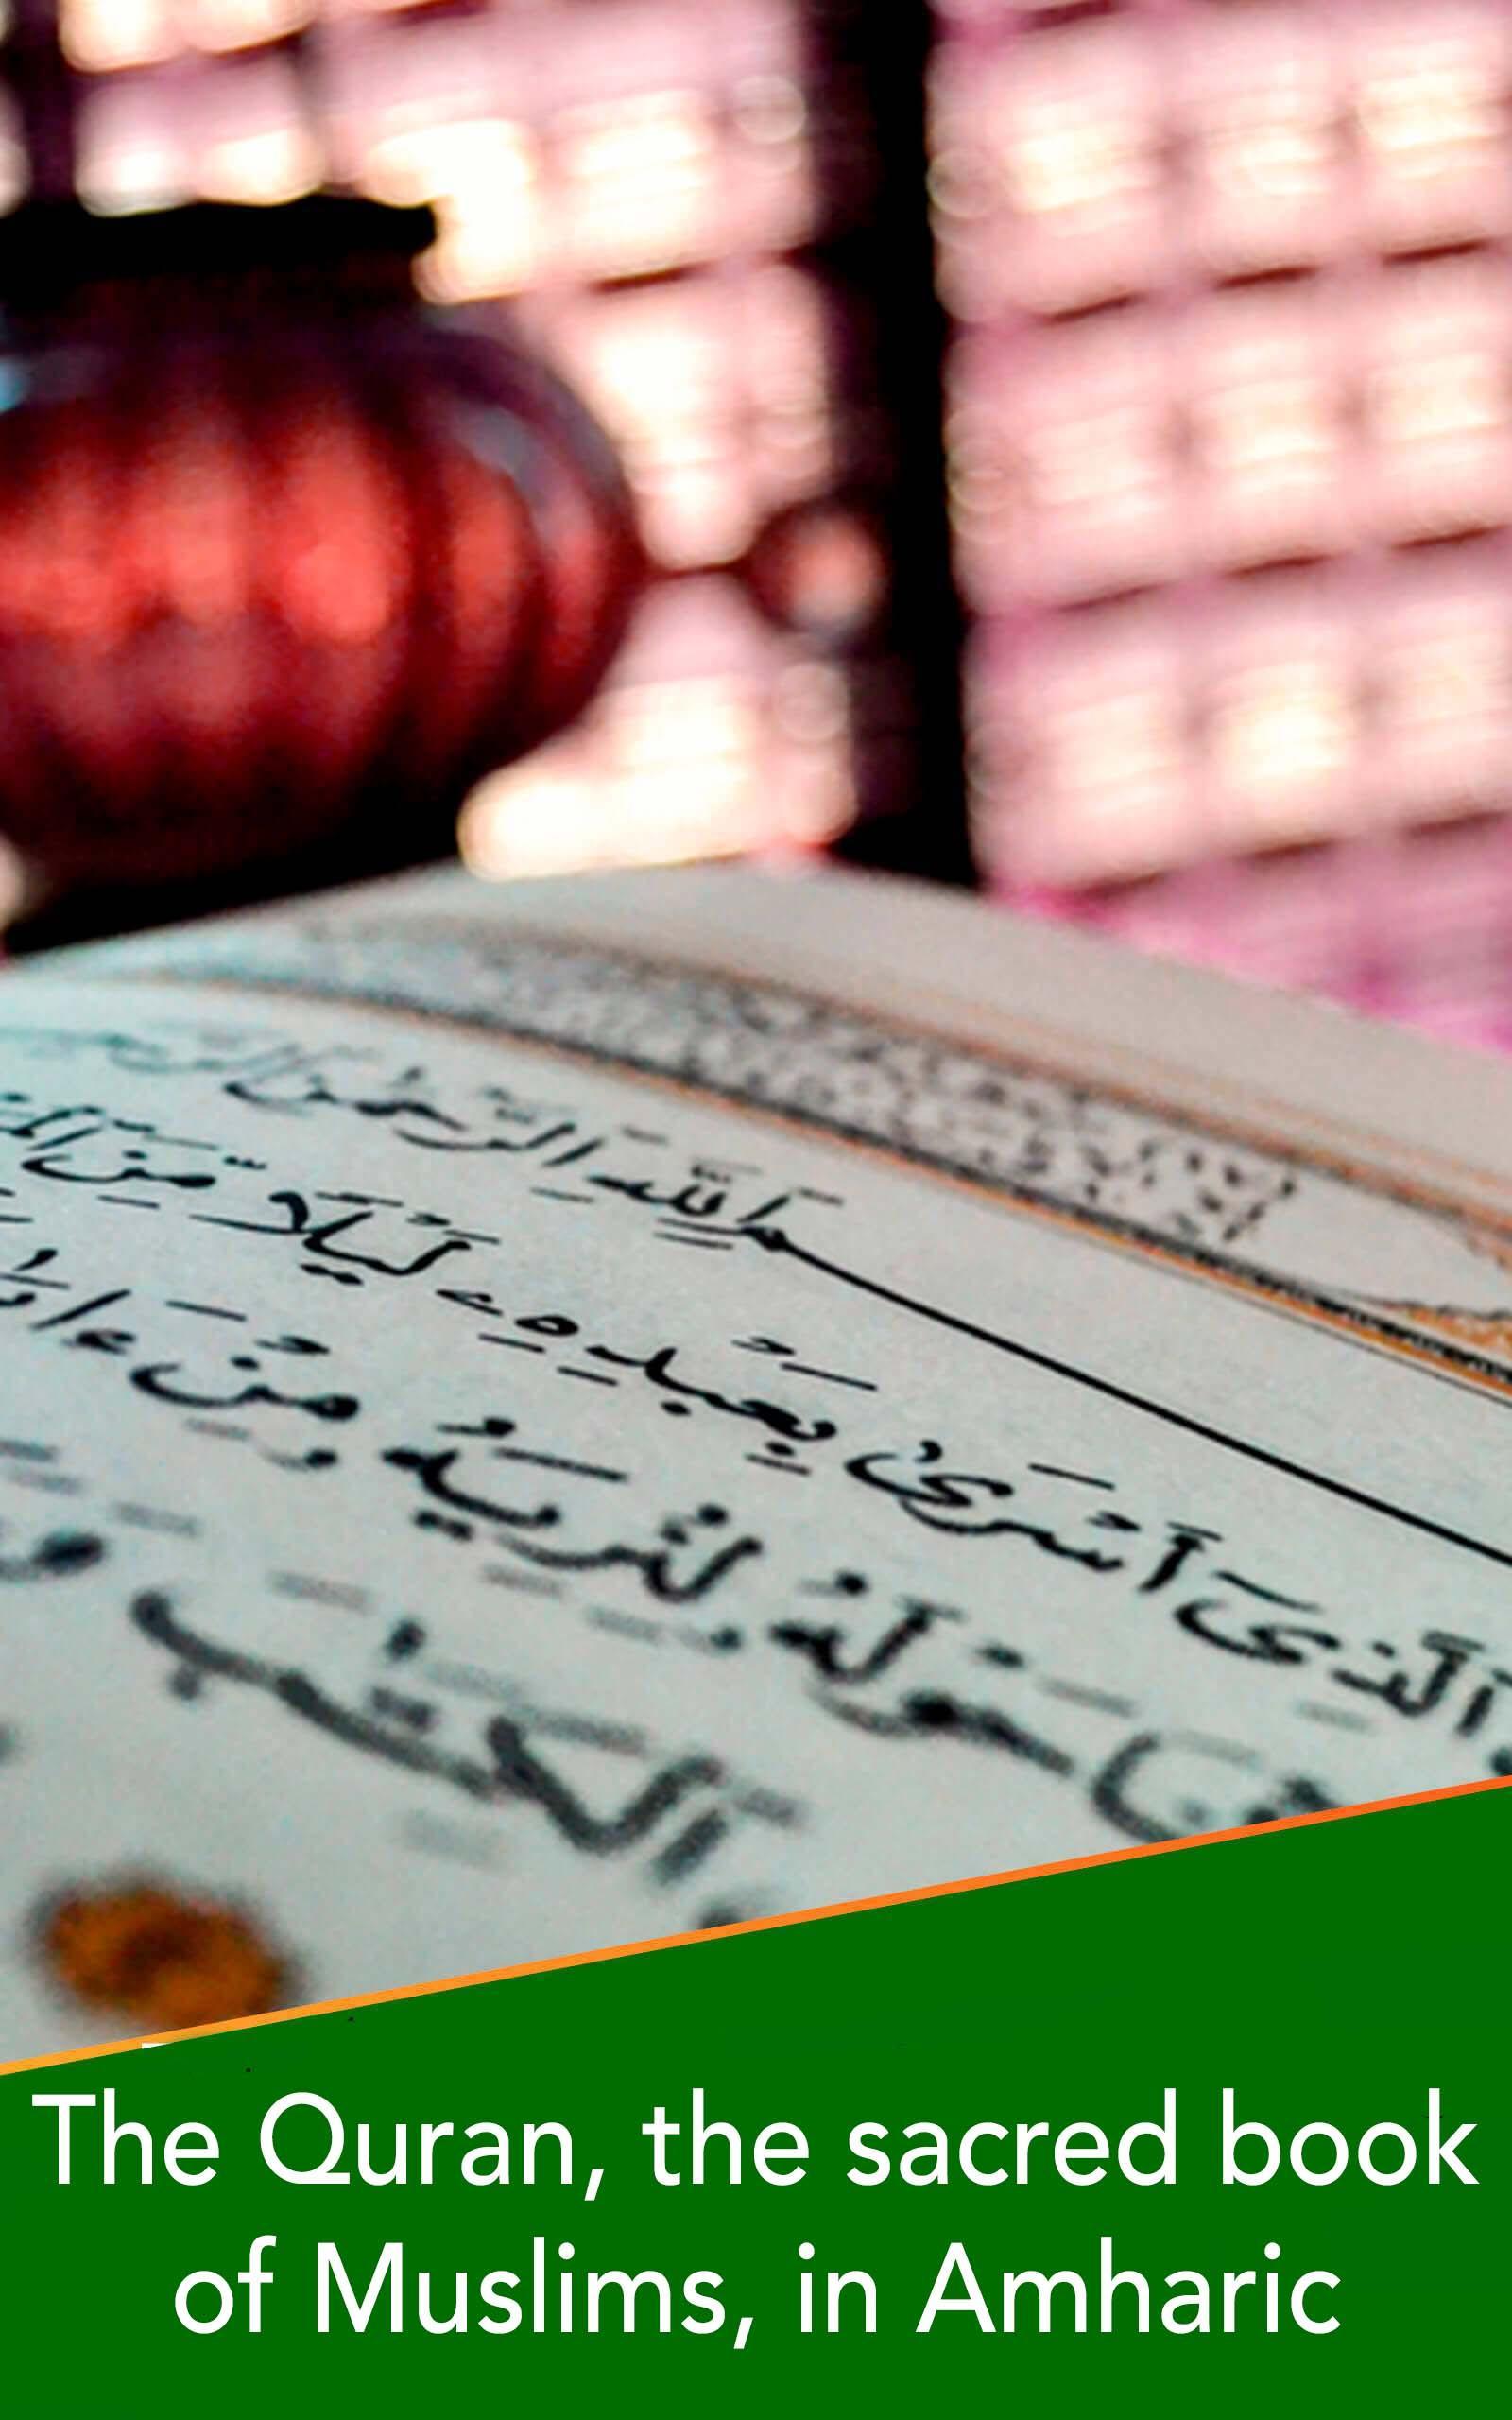 بسم الله الرحمن الر
الَّذِىٓ أَسْرَىٰ بِعَبْدِهِۦ لَيْلًا مِّنَ
حَوْلَهُۥ لِنُرِيَهُۥ مِنْ
ٱلْكِتَٰبَ
The Quran, the sacred book
of Muslims, in Amharic